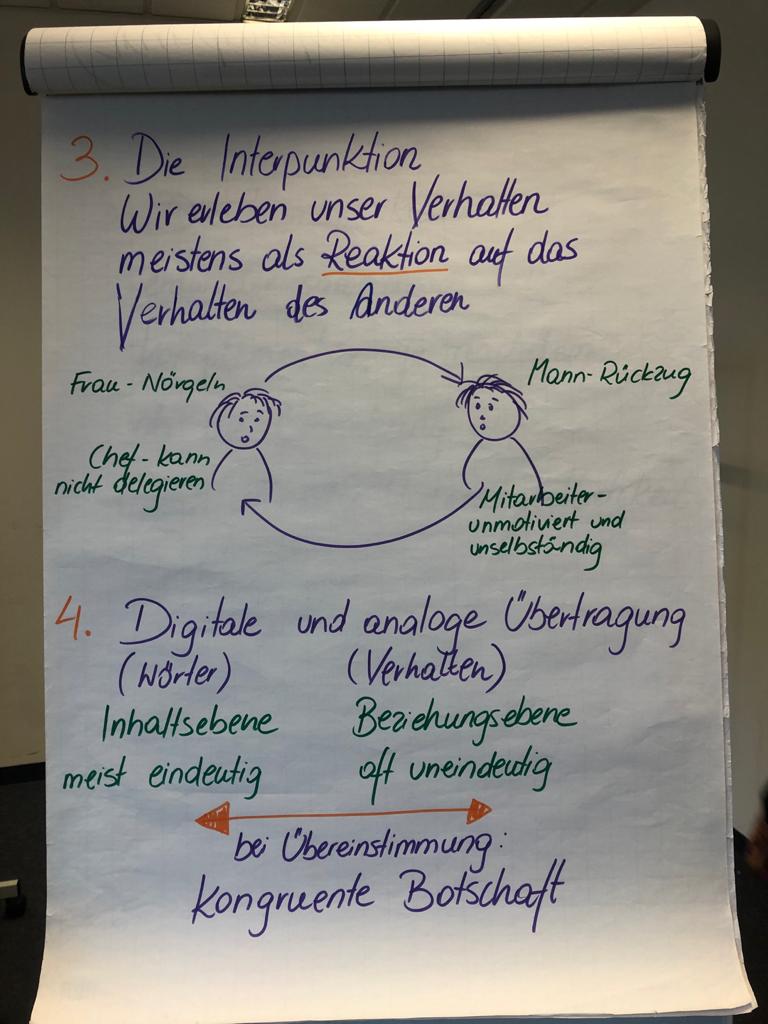 3. Die Interpunktion
Wir erleben unser Verhalten
meistens als Reaktion auf das
Verhalten des Anderen
Frau - Nörgeln
Mann - Rückzug
Chef - kann
nicht delegieren
Mitarbeiter -
unmotiviert und
unselbständig
4. Digitale und analoge Übertragung
(Wörter) (Verhalten)
Inhaltsebene Beziehungsebene
meist eindeutig oft uneindeutig
bei Übereinstimmung:
kongruente Botschaft